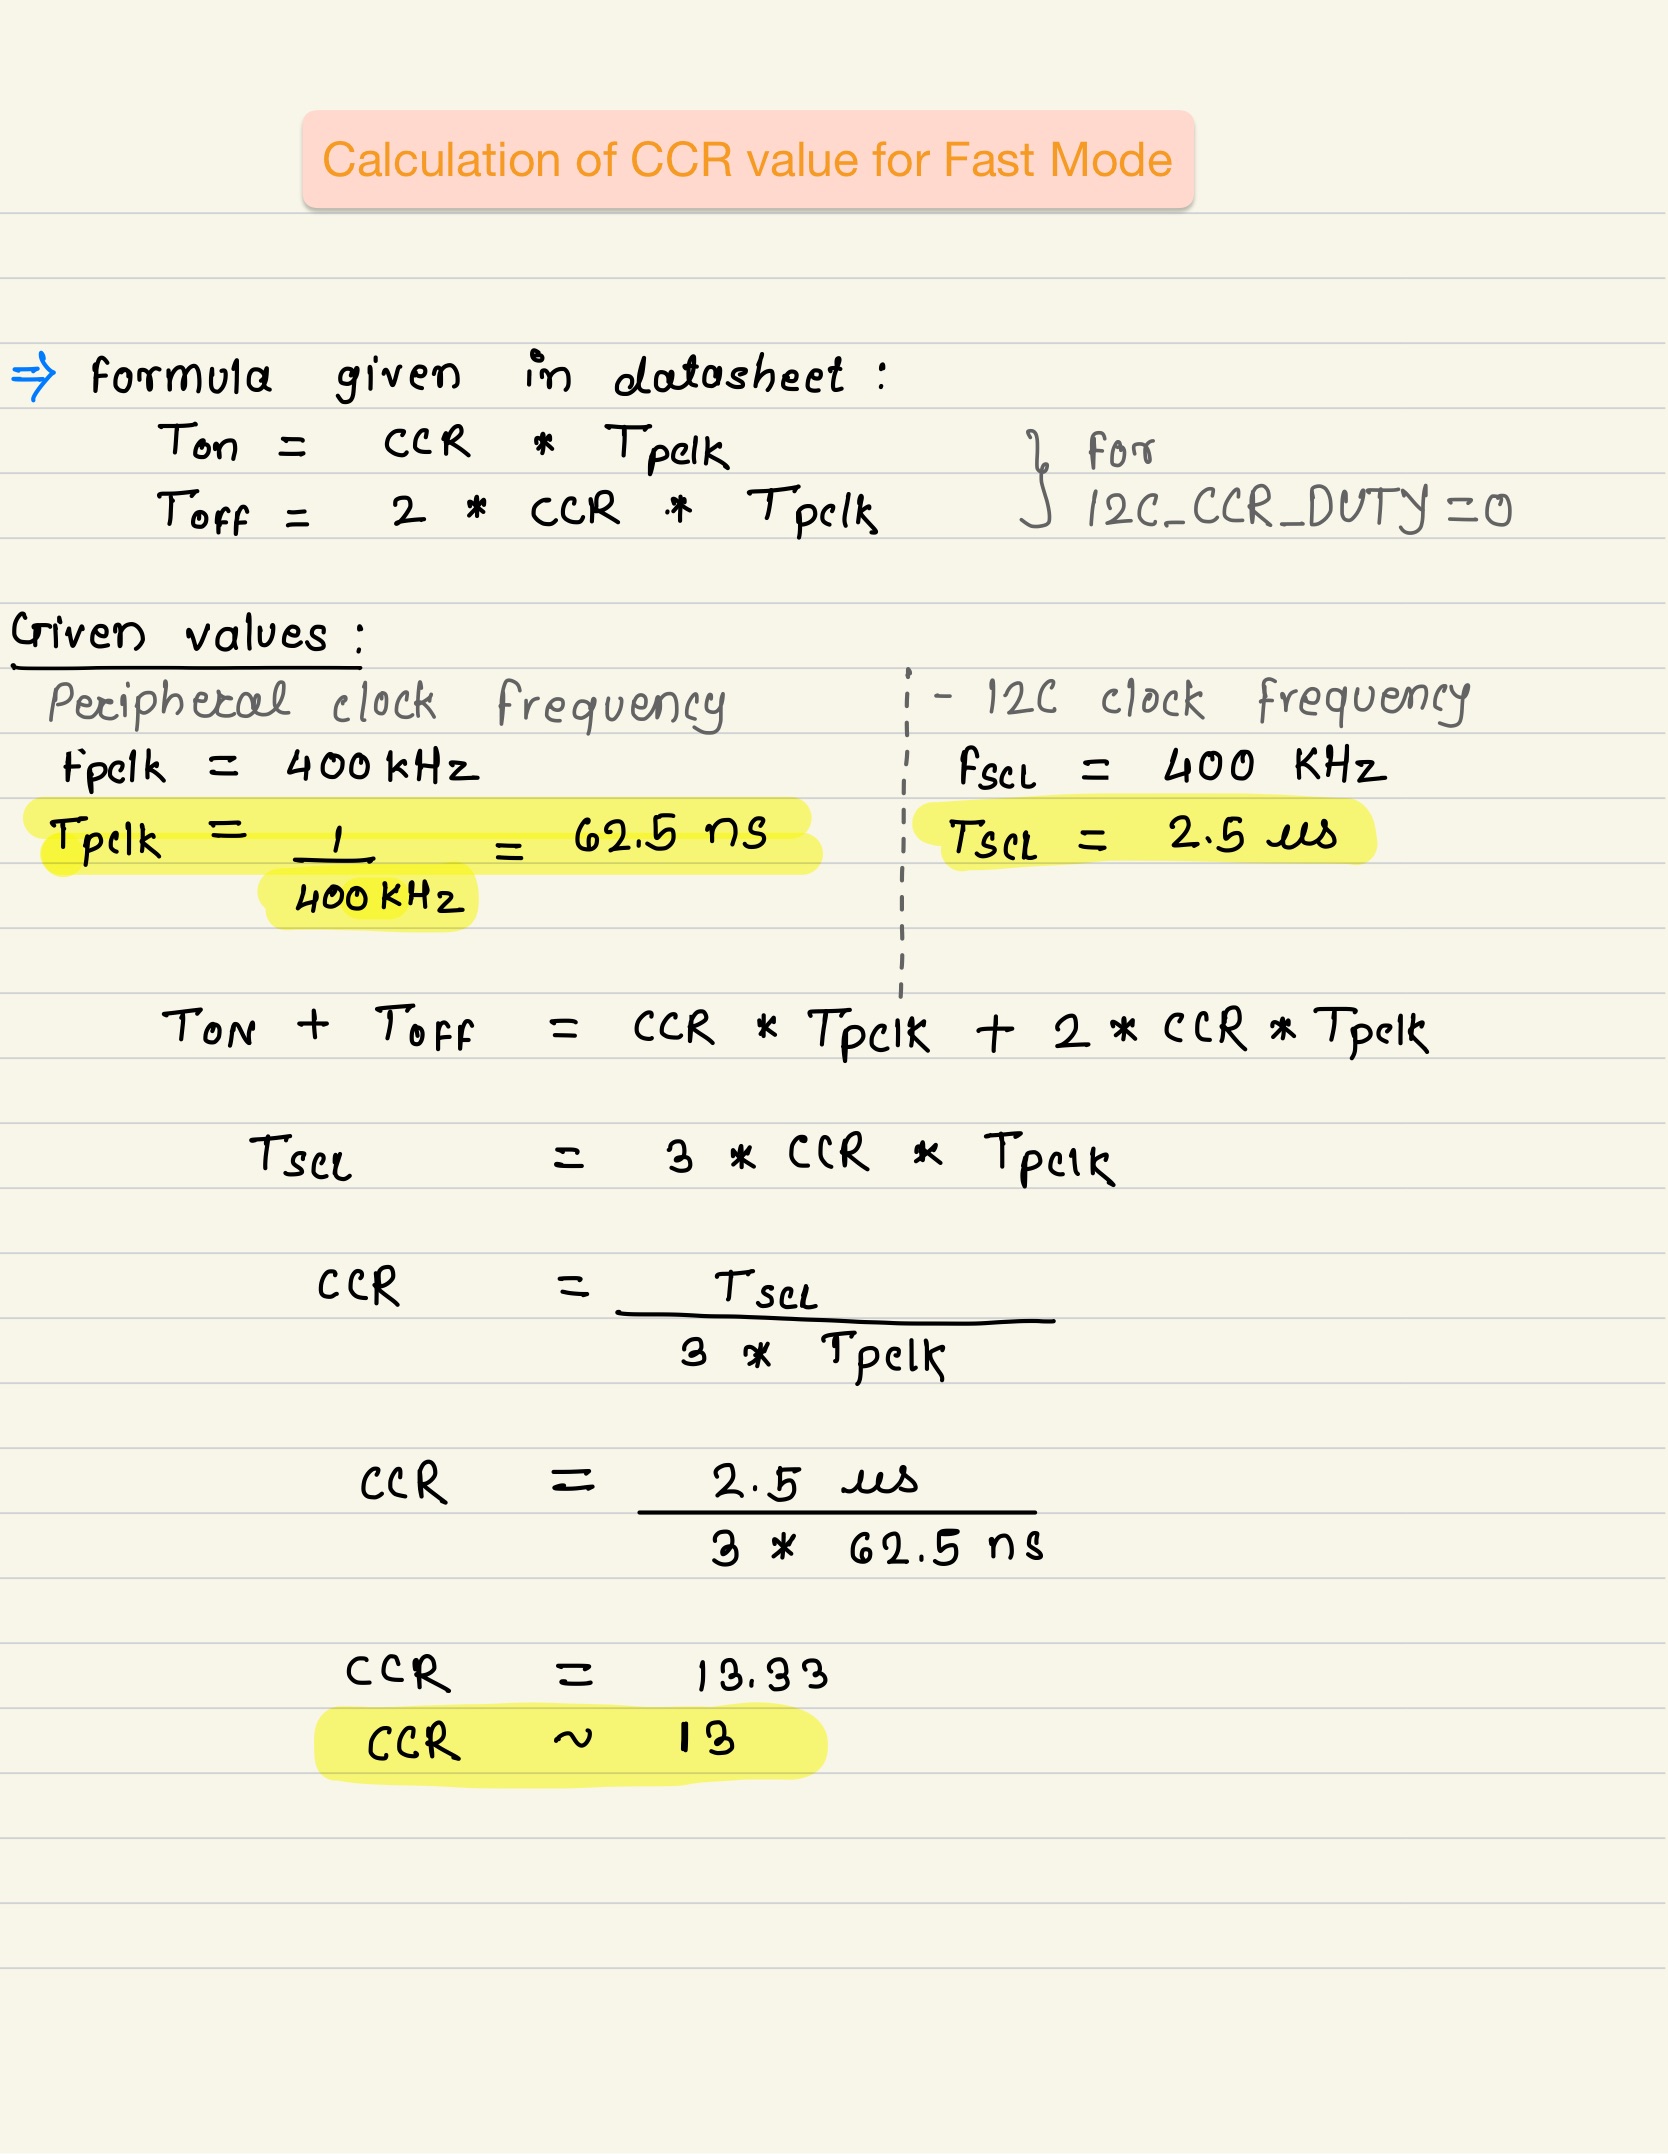 Calculation of CCR value for Fast Mode
⇒ formula given in datasheet :
Ton = CCR * Tpclk
Toff = 2 * CCR * Tpclk
} for
I2C_CCR_DUTY = 0
Given values :
Peripheral clock frequency
Fpclk = 400 kHz
Tpclk = 1 / 400 KHz = 62.5 ns
- I2C clock frequency
fSCL = 400 KHz
TSCL = 2.5 us
TON + TOFF = CCR * Tpclk + 2 * CCR * Tpclk
TSCL = 3 * CCR * Tpclk
CCR = TSCL / 3 * Tpclk
CCR = 2.5 us / 3 * 62.5 ns
CCR = 13.33
CCR ~ 13